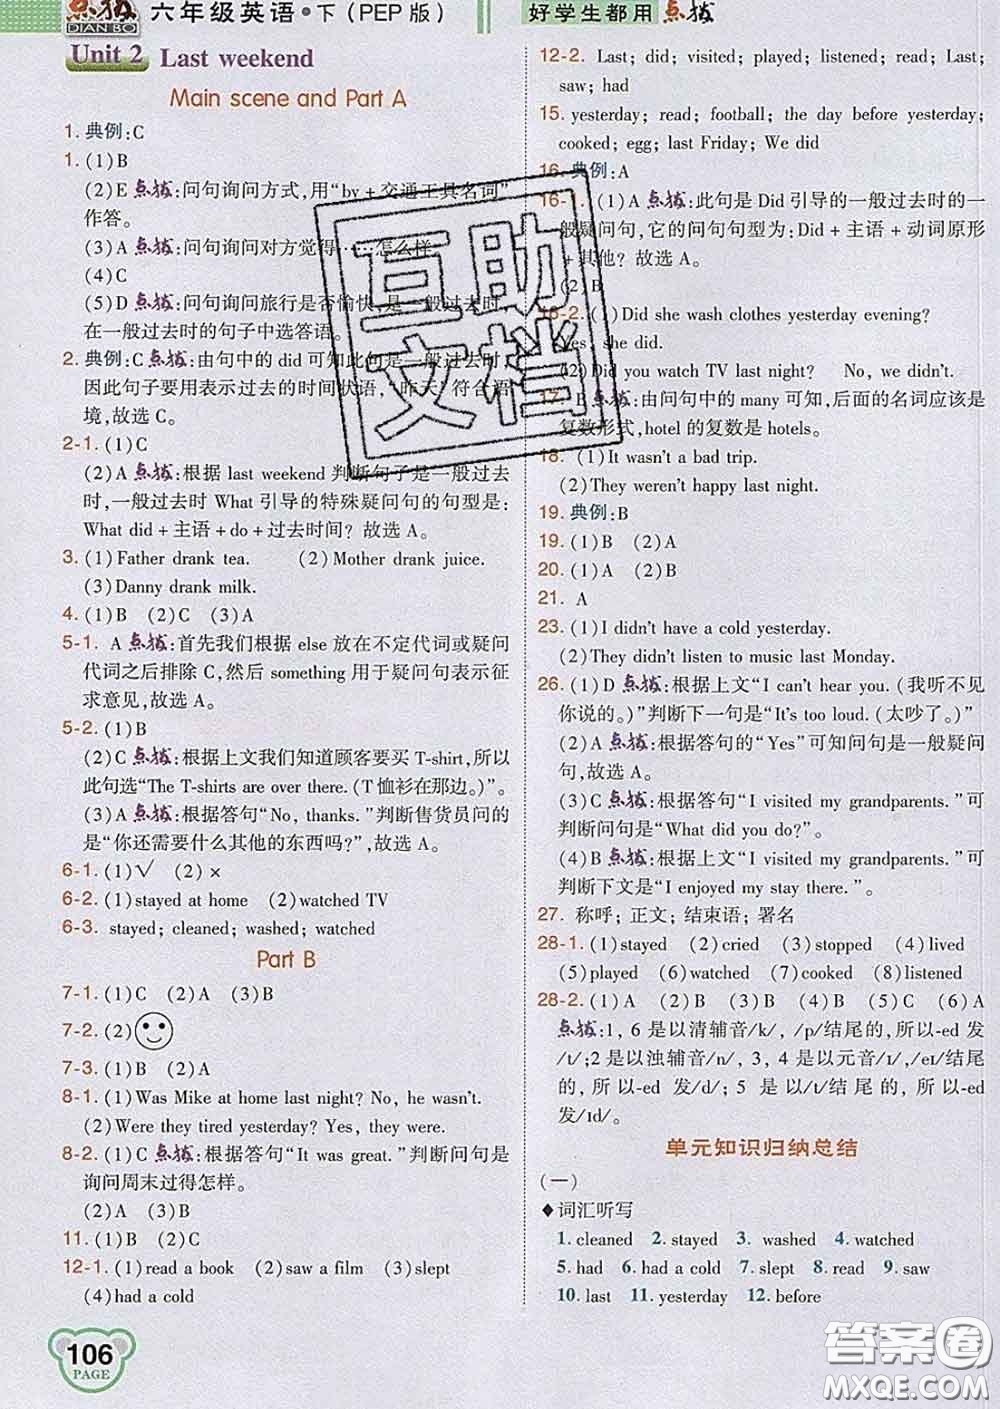 点拨 DIAN BO 六年级英语·下(PEP版)
好学生都用点拨
Unit 2 Last weekend
Main scene and Part A
1. 典例:C
1. (1)B
(2)E 点拨:问句询问方式,用“by+交通工具名词”
作答。
(3)A 点拨:问句询问对方觉得……怎么样。
(4)C
(5)D 点拨:问句询问旅行是否愉快,是一般过去时,
在一般过去时的句子中选答语。
2. 典例:C 点拨:由句中的 did 可知此句是一般过去时,
因此句子要用表示过去的时间状语,“昨天”符合语
境,故选 C。
2-1. (1)C
(2)A 点拨:根据 last weekend 判断句子是一般过去
时,一般过去时 What 引导的特殊疑问句的句型是:
What did+主语+do+过去时间? 故选 A。
3. (1)Father drank tea. (2)Mother drank juice.
(3)Danny drank milk.
4. (1)B (2)C (3)A
5-1. A 点拨:首先我们根据 else 放在不定代词或疑问
代词之后排除 C,然后 something 用于疑问句表示征
求意见,故选 A。
5-2. (1)B
(2)C 点拨:根据上文我们知道顾客要买 T-shirt,所以
此句选“The T-shirts are over there.(T恤衫在那边。)”。
(3)A 点拨:根据答句“No, thanks.”判断售货员问的
是“你还需要什么其他的东西吗?”,故选 A。
6-1. (1)√ (2)×
6-2. (1)stayed at home (2)watched TV
6-3. stayed; cleaned; washed; watched
Part B
7-1. (1)C (2)A (3)B
7-2. (2)
7-3. (1)B (2)A
8-1. (1)Was Mike at home last night? No, he wasn't.
(2)Were they tired yesterday? Yes, they were.
8-2. (1)C 点拨:根据答句“It was great.”判断问句是
询问周末过得怎样。
(2)A (3)B
11. (1)B (2)C
12-1. (1)read a book (2)saw a film (3)slept
(4)had a cold
106
PAGE
12-2. Last; did; visited; played; listened; read; Last;
saw; had
15. yesterday; read; football; the day before yesterday;
cooked; egg; last Friday; We did
16. 典例:A
16-1. (1)A 点拨:此句是 Did 引导的一般过去时的一
般疑问句,它的问句句型为:Did+主语+动词原形
+其他? 故选 A。
(2)B
16-2. (1)Did she wash clothes yesterday evening?
Yes, she did.
(2)Did you watch TV last night? No, we didn't.
17. B 点拨:由问句中的 many 可知,后面的名词应该是
复数形式,hotel 的复数是 hotels。
18. (1)It wasn't a bad trip.
(2)They weren't happy last night.
19. 典例:B
19. (1)B (2)A
20. (1)A (2)B
21. A
23. (1)I didn't have a cold yesterday.
(2)They didn't listen to music last Monday.
26. (1)D 点拨:根据上文“I can't hear you.(我听不见
你说的。)”判断下一句是“It's too loud.(太吵了。)”
(2)A 点拨:根据答句的“Yes”可知问句是一般疑问
句,故选 A。
(3)C 点拨:根据答句“I visited my grandparents.”可
判断问句是“What did you do?”。
(4)B 点拨:根据上文“I visited my grandparents.”可
判断下文是“I enjoyed my stay there.”。
27. 称呼; 正文; 结束语; 署名
28-1. (1)stayed (2)cried (3)stopped (4)lived
(5)played (6)watched (7)cooked (8)listened
28-2. (1)A (2)B (3)B (4)B (5)C (6)A
点拨:1, 6 是以清辅音/k/, /p/结尾的,所以-ed 发
/t/;2 是以浊辅音/n/, 3, 4 是以元音/ɪ/,/eɪ/结尾
的, 所 以-ed 发/d/; 5 是 以/t/结 尾 的, 所 以-ed
发/ɪd/。
单元知识归纳总结
(一)
◆词汇听写
1. cleaned 2. stayed 3. washed 4. watched
5. had 6. had a cold 7. slept 8. read 9. saw
10. last 11. yesterday 12. before
互助
文档
答案圈
MXQE.COM